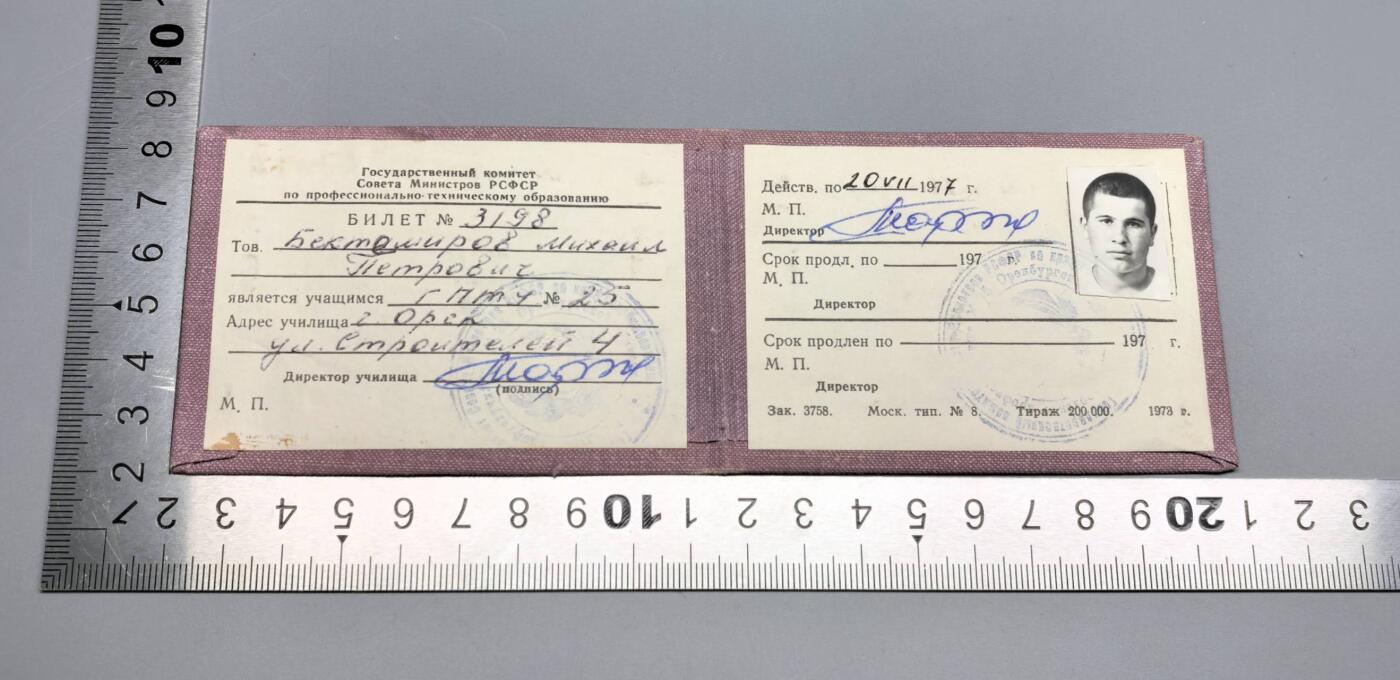 Государственный комитет
Совета Министров РСФСР
по профессионально-техническому образованию
БИЛЕТ № 3198
Тов. Бектамиров Михаил
Петрович
является учащимся ГПТУ № 25
Адрес училища г Орск
ул. Строителей 4
Директор училища
(подпись)
М. П.
Действ. по 20 VII 1977 г.
М. П.
Директор
Срок продл. по 197 г.
М. П.
Директор
Срок продлен по 197 г.
М. П.
Директор
Зак. 3758. Моск. тип. № 8. Тираж 200 000. 1973 г.
10
9
8
7
6
5
4
3
2
1
2 3 4 5 6 7 8 9 10 1 2 3 4 5 6 7 8 9 20 1 2 3